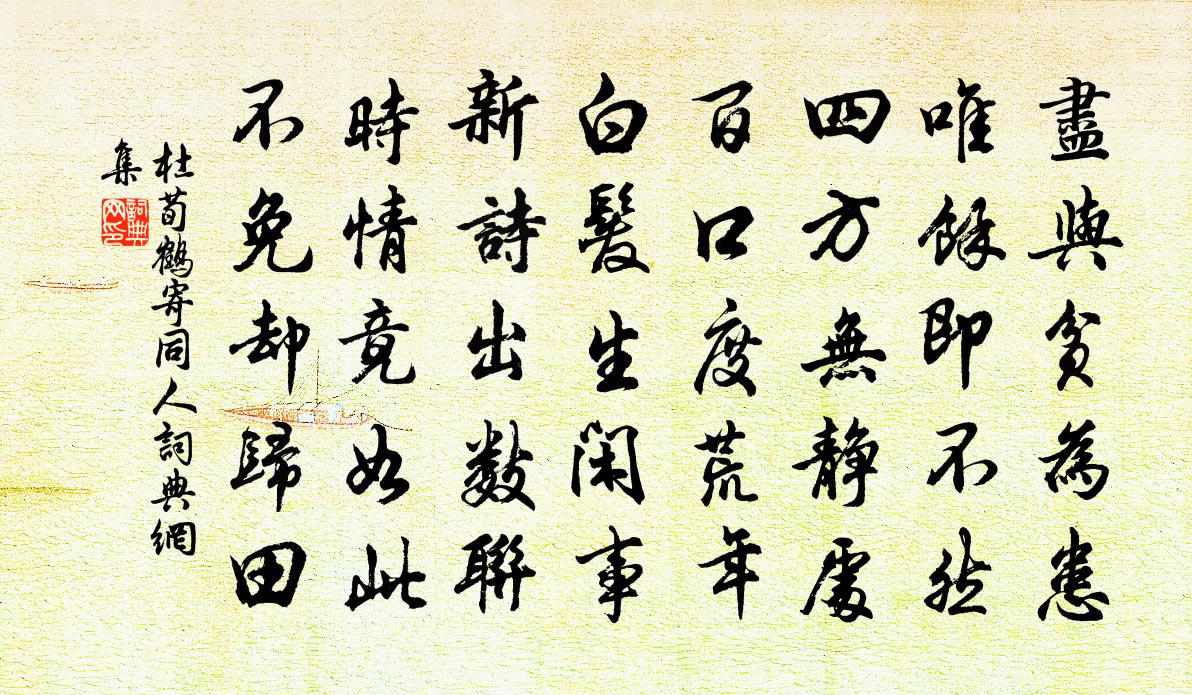 盡與貧為患
唯餘即不然
四方無靜處
百口度荒年
白髮生閑事
新詩出數聯
時情竟如此
不免却歸田
杜荀鶴寄同人詞典網
集
詞典
网印